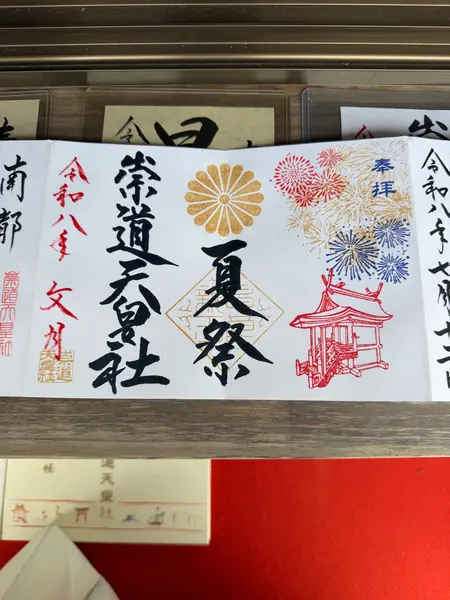 奉拝
夏祭
崇道天皇社
令和八年 文月
南都
崇道天皇社
令和八年七月十二日
道天皇社